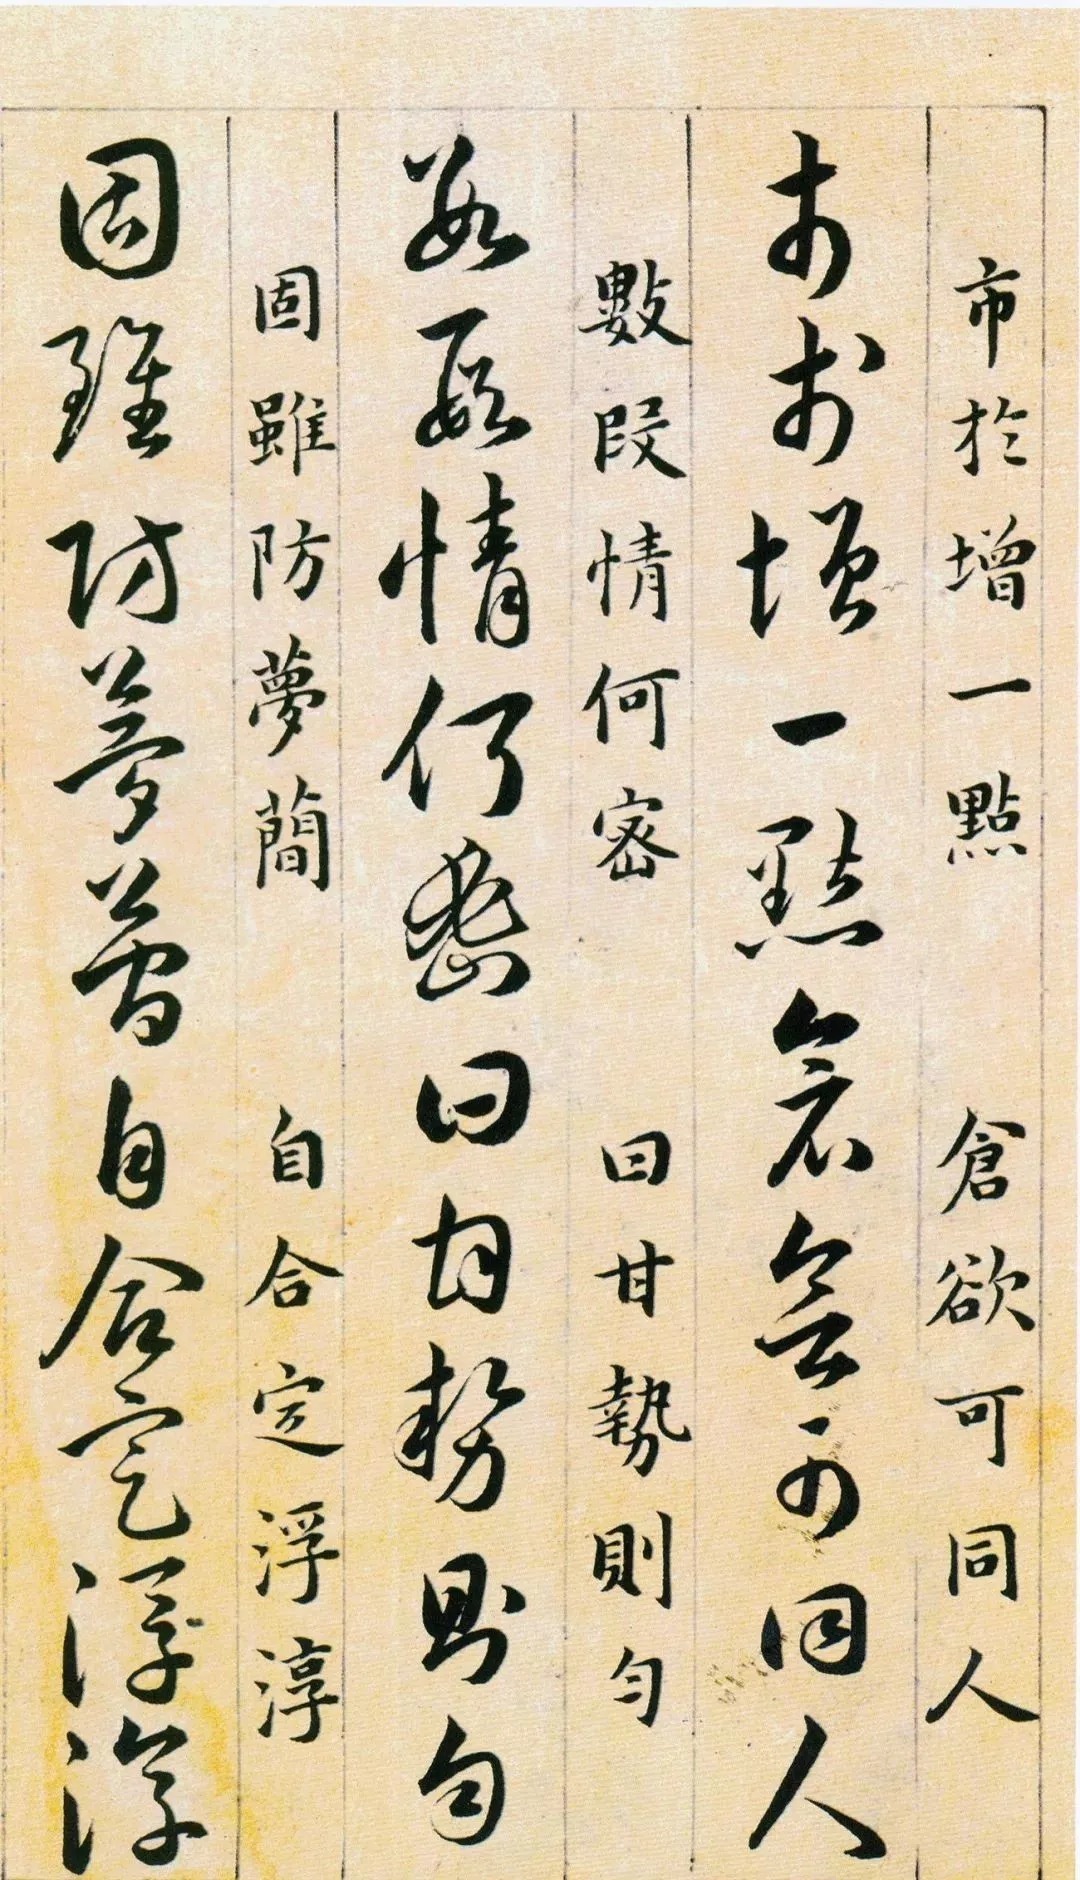 市於增一點 倉欲可同人
市於增一點倉欲可同人
數段情何密 曰甘勢則勻
數段情何密曰甘勢則勻
固雖防夢簡 自合定浮淳
固雖防夢簡自合定浮淳